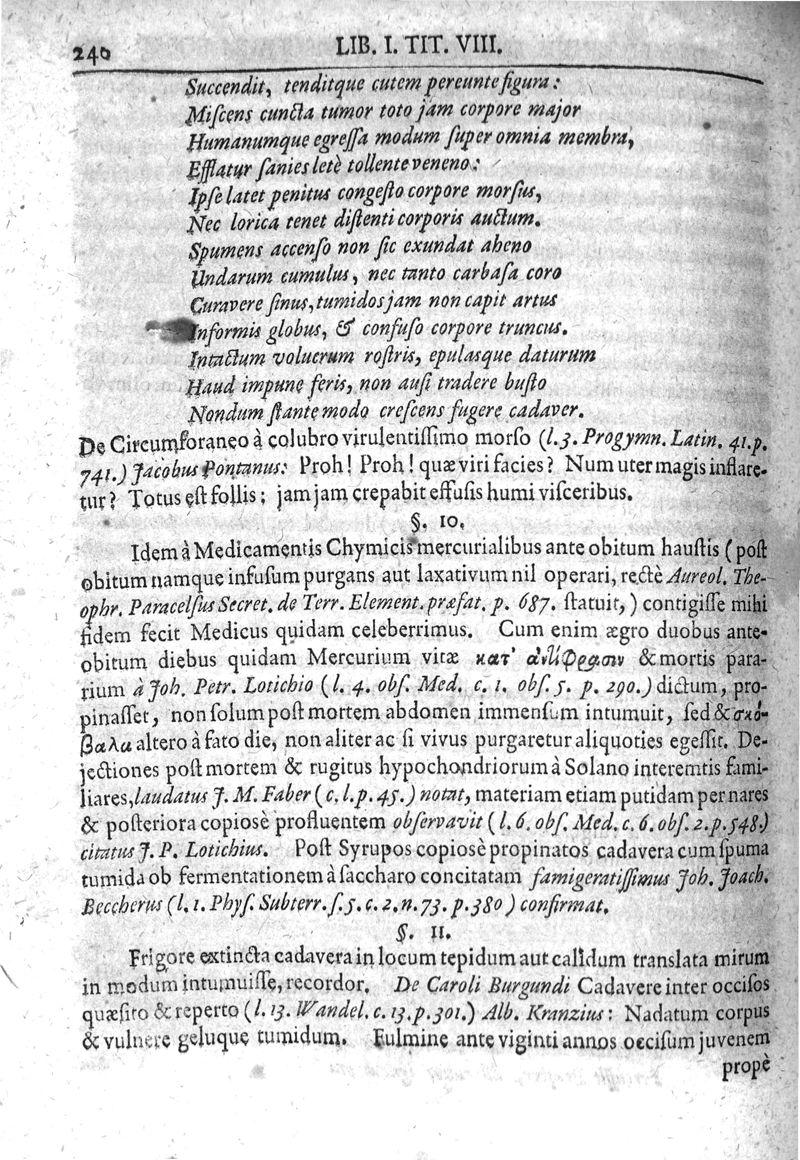 240 LIB. I. TIT. VIII.
Succendit, tenditque cutem pereunte figura:
Miſcens cuncta tumor toto jam corpore major
Humanumque egreſſa modum ſuper omnia membra,
Efflatur ſanies letè tollente veneno:
Ipſe latet penitus congeſto corpore morſus,
Nec lorica tenet diſtenti corporis auctum.
Spumens accenſo non ſic exundat aheno
Undarum cumulus, nec tanto carbaſa coro
Curavere ſinus, tumidos jam non capit artus
Informis globus, & confuſo corpore truncus.
Intactum volucrum roſtris, epulasque daturum
Haud impune feris, non auſi tradere buſto
Nondum ſtante modo creſcens fugere cadaver.
De Circumforaneo à colubro virulentiſſimo morſo (l. 3. Progymn. Latin. 41. p.
741.) Jacobus Pontanus: Proh! Proh! quæ viri facies? Num uter magis inflare-
tur? Totus eſt follis; jam jam crepabit effuſis humi viſceribus.
§. 10.
Idem à Medicamentis Chymicis mercurialibus ante obitum hauſtis (poſt
obitum namque infuſum purgans aut laxativum nil operari, rectè Aureol. The-
ophr. Paracelſus Secret. de Terr. Element. præfat. p. 687. ſtatuit,) contigiſſe mihi
fidem fecit Medicus quidam celeberrimus. Cum enim ægro duobus ante-
obitum diebus quidam Mercurium vitæ κατ' ἀντίφρασιν & mortis para-
rium à Joh. Petr. Lotichio (l. 4. obſ. Med. c. 1. obſ. 5. p. 290.) dictum, pro-
pinaſſet, non ſolum poſt mortem abdomen immenſum intumuit, ſed & σκό-
βαλα altero à fato die, non aliter ac ſi vivus purgaretur aliquoties egeſſit. De-
jectiones poſt mortem & rugitus hypochondriorum à Solano interemtis fami-
liares, laudatus J. M. Faber (c. l. p. 45.) notat, materiam etiam putidam per nares
& poſteriora copiosè profluentem obſervavit (l. 6. obſ. Med. c. 6. obſ. 2. p. 548.)
citatus J. P. Lotichius. Poſt Syrupos copiosè propinatos cadavera cum ſpuma
tumida ob fermentationem à ſaccharo concitatam famigeratiſſimus Joh. Joach.
Beccherus (l. 1. Phyſ. Subterr. ſ. 5. c. 2. n. 73. p. 380) confirmat.
§. 11.
Frigore extincta cadavera in locum tepidum aut calidum translata mirum
in modum intumuiſſe, recordor. De Caroli Burgundi Cadavere inter occiſos
quæſito & reperto (l. 13. Wandel. c. 13. p. 301.) Alb. Kranzius: Nadatum corpus
& vulnere geluque tumidum. Fulmine ante viginti annos occiſum juvenem
propè